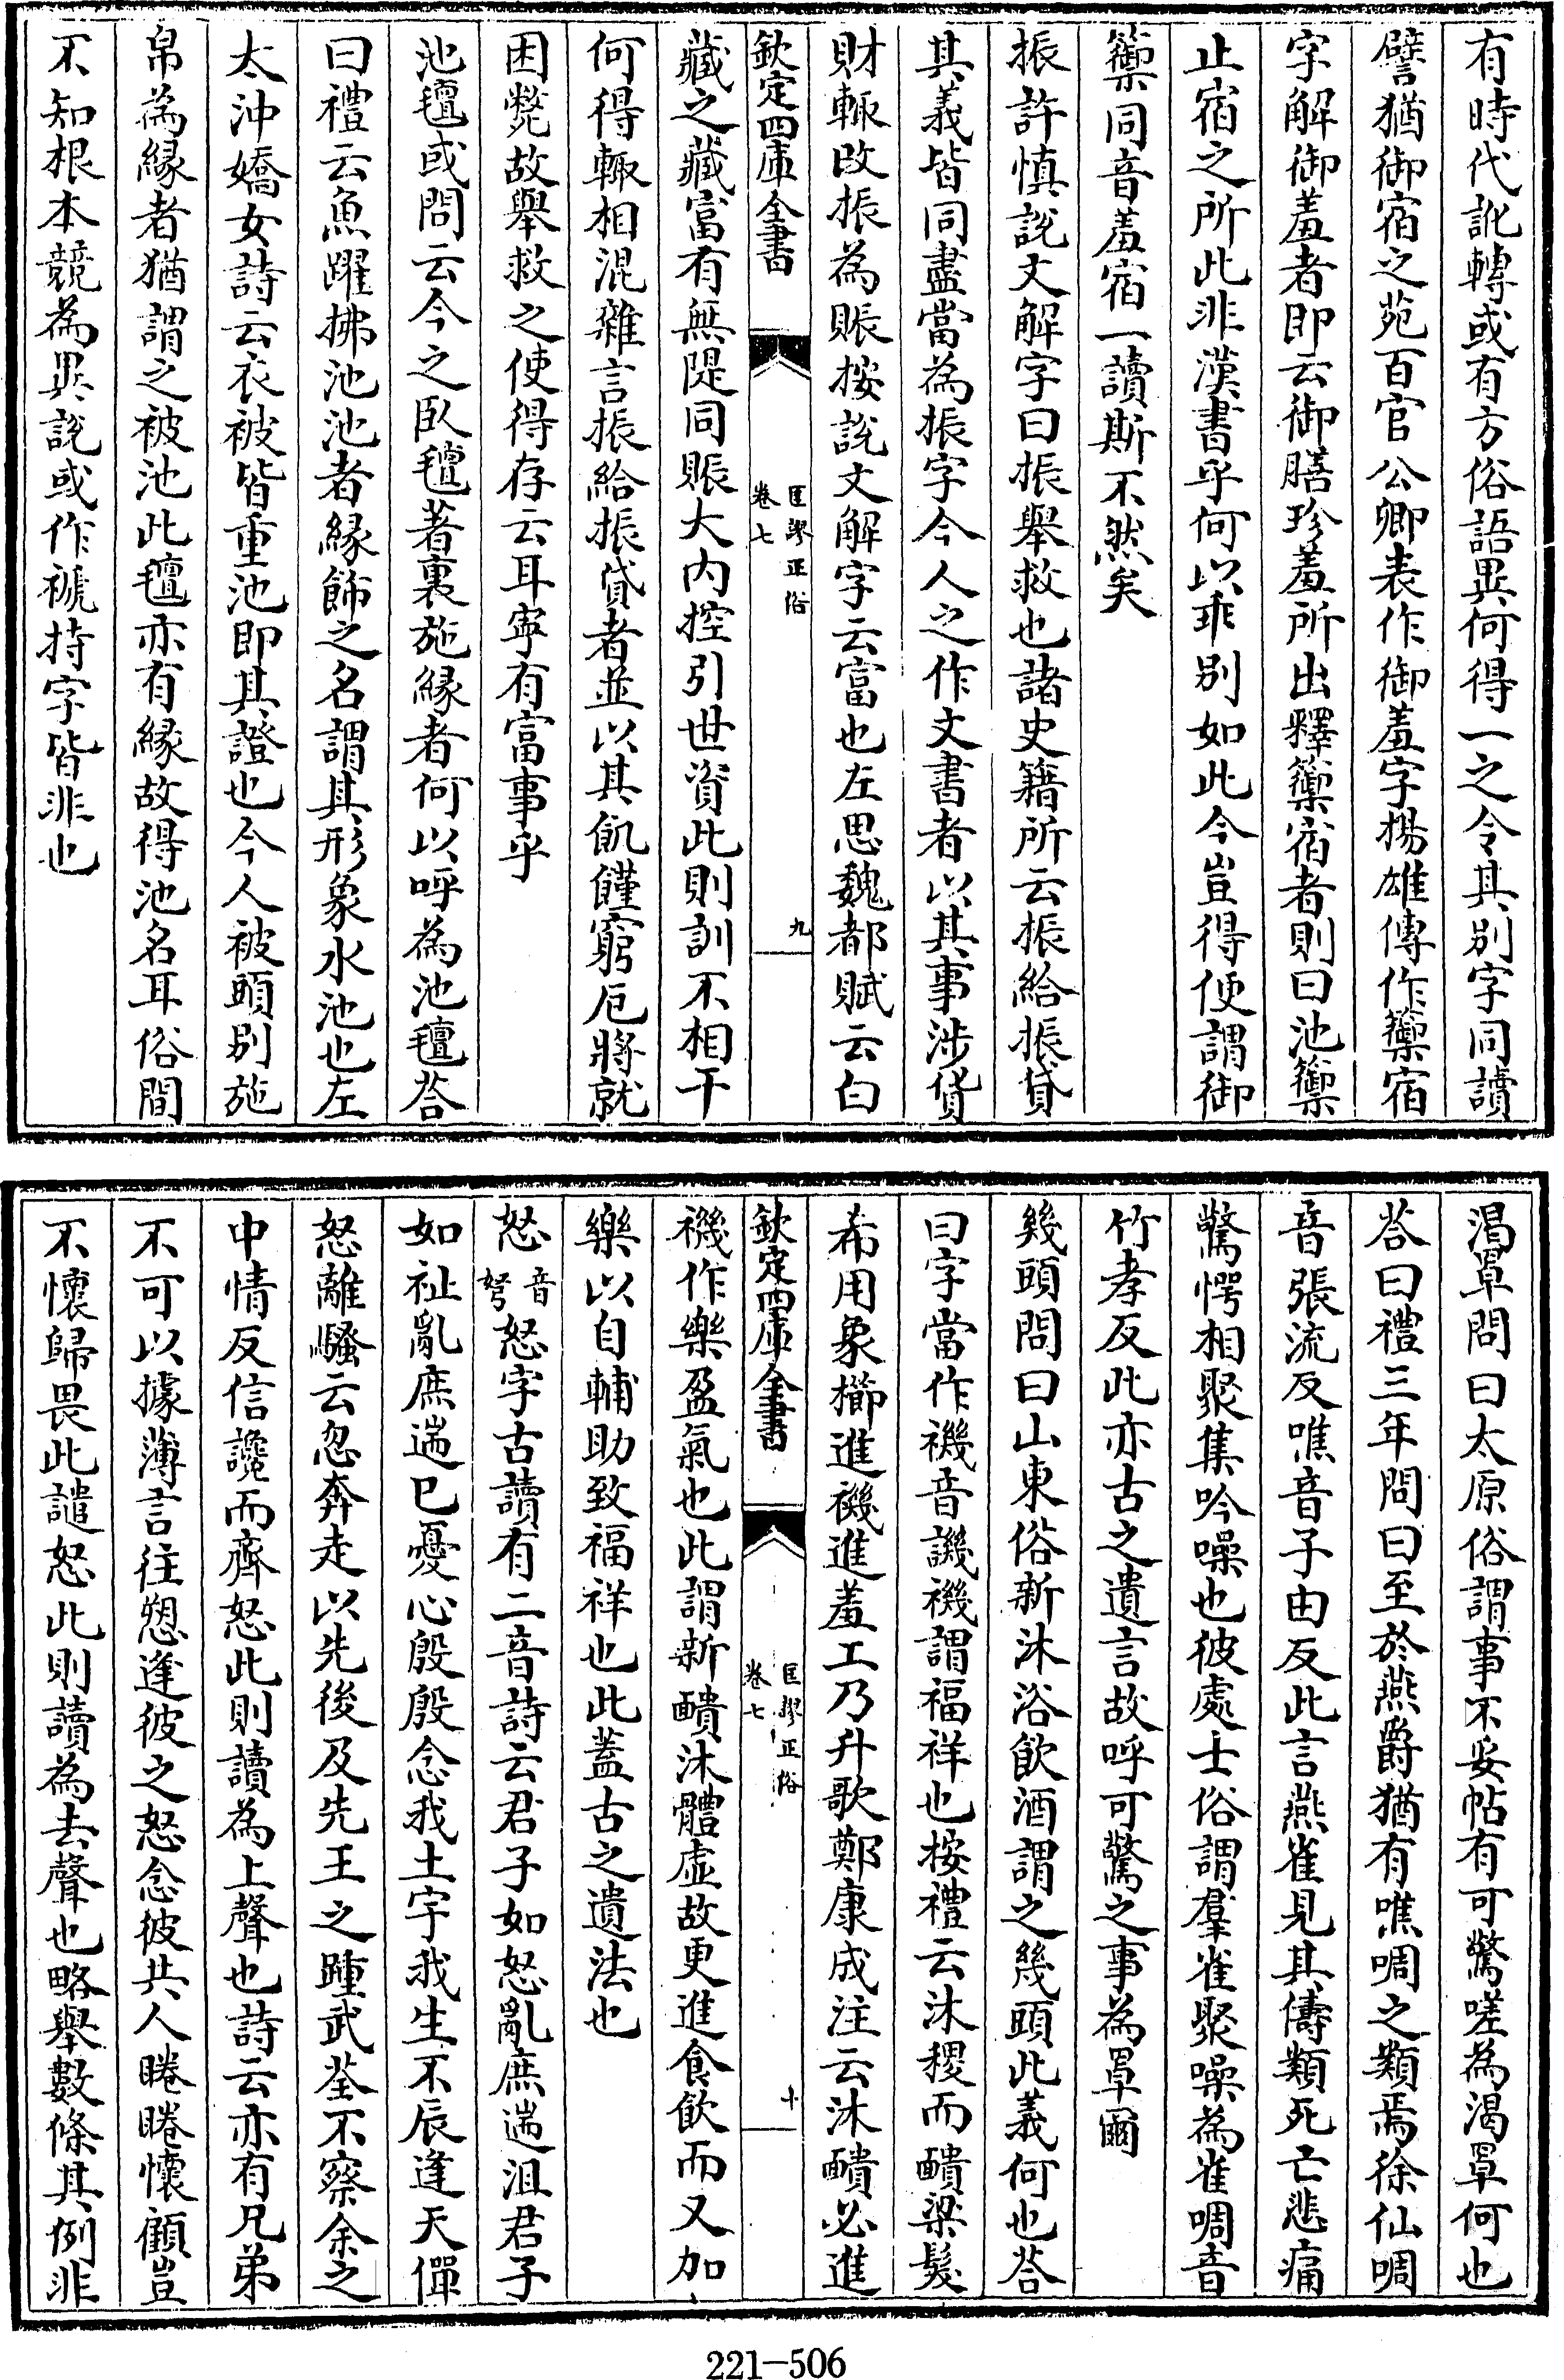 有時代訛轉或有方俗語異何得一之令其別字同讀
譬猶御宿之苑百官公卿表作御羞字揚雄傳作籞宿
字解御羞者即云御膳珍羞所出釋籞宿者則曰池籞
止宿之所此非漢書乎何以乖別如此今豈得便謂御
籞同音羞宿一讀斯不然矣
振許慎說文解字曰振舉救也諸史籍所云振給振貸
其義皆同盡當為振字今人之作文書者以其事涉貨
財輙改振為賑按說文解字云富也左思魏都賦云白
欽定四庫全書
匡謬正俗
卷七
九
藏之藏富有無隄同賑大内控引世資此則訓不相干
何得輙相混雜言振給振貸者並以其飢饉窮厄將就
困斃故舉救之使得存云耳寧有富事乎
池氊或問云今之臥氊著裏施縁者何以呼為池氊荅
曰禮云魚躍拂池池者縁飾之名謂其形象水池也左
太沖嬌女詩云衣被皆重池即其證也今人被頭别施
帛為縁者猶謂之被池此氊亦有縁故得池名耳俗間
不知根本競為異說或作褫持字皆非也
渴罩問曰太原俗謂事不妥帖有可驚嗟為渴罩何也
荅曰禮三年問曰至於燕爵猶有噍啁之類焉徐仙啁
音張流反噍音子由反此言燕雀見其儔類死亡悲痛
驚愕相聚集吟噪也彼處士俗謂羣雀聚噪為雀啁音
竹孝反此亦古之遺言故呼可驚之事為罩爾
幾頭問曰山東俗新沐浴飲酒謂之幾頭此義何也荅
曰字當作禨音譏禨謂福祥也按禮云沐稷而靧梁髮
希用象櫛進禨進羞工乃升歌鄭康成注云沐靧必進
欽定四庫全書
匡謬正俗
卷七
十
禨作樂盈氣也此謂新靧沐體虛故更進食飲而又加
樂以自輔助致福祥也此蓋古之遺法也
怒音弩怒字古讀有二音詩云君子如怒亂庶遄沮君子
如祉亂庶遄已憂心殷殷念我土宇我生不辰逢天僤
怒離騷云忽奔走以先後及先王之踵武荃不察余之
中情反信讒而齊怒此則讀為上聲也詩云亦有兄弟
不可以據薄言往愬逢彼之怒念彼共人睠睠懷顧豈
不懷歸畏此譴怒此則讀為去聲也略舉數條其例非
221—506